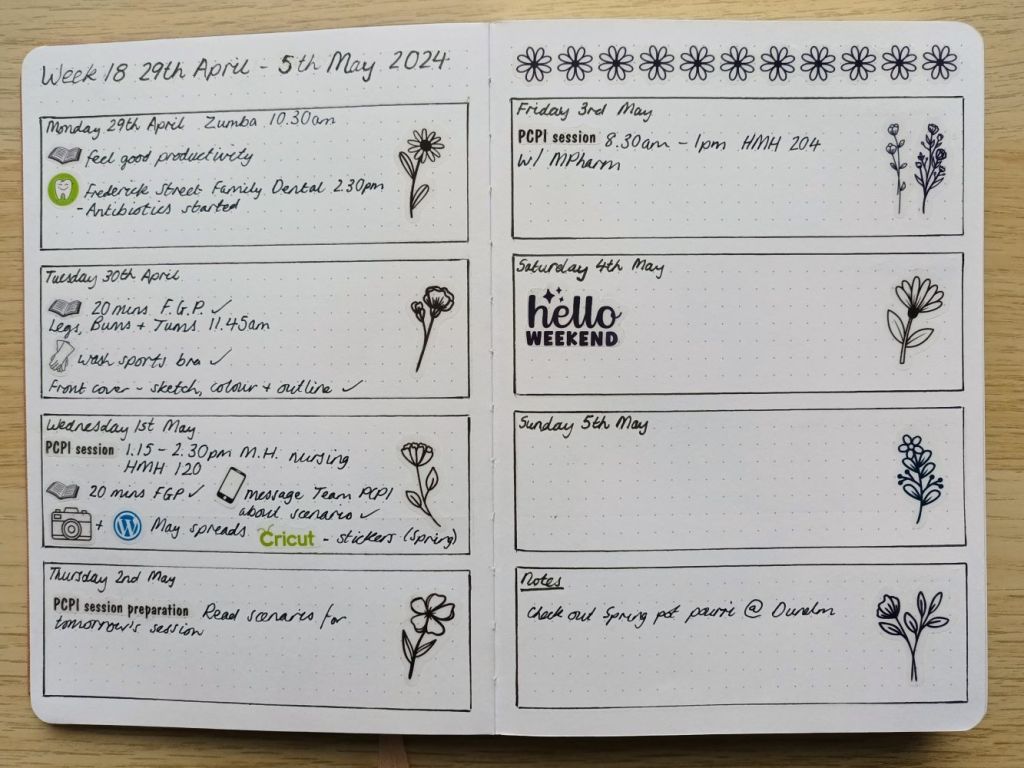 Week 18 29th April - 5th May 2024
Monday 29th April Zumba 10.30am
feel good productivity
Frederick Street Family Dental 2.30pm
- Antibiotics started
Tuesday 30th April
20 mins F.G.P. ✓
Legs, Bums + Tums 11.45am
wash sports bra ✓
Front cover - sketch, colour + outline ✓
Wednesday 1st May
PCPI session 1.15 - 2.30pm M.H. nursing
HMH 120
20 mins FGP ✓ message Team PCPI
about scenario ✓
+ W May spreads Cricut - stickers (spring)
Thursday 2nd May
PCPI session preparation Read scenarios for
tomorrow's session
Friday 3rd May
PCPI session 8.30am - 1pm HMH 204
w/ MPharm
Saturday 4th May
hello
WEEKEND
Sunday 5th May
Notes
Check out Spring pot pourri @ Dunelm